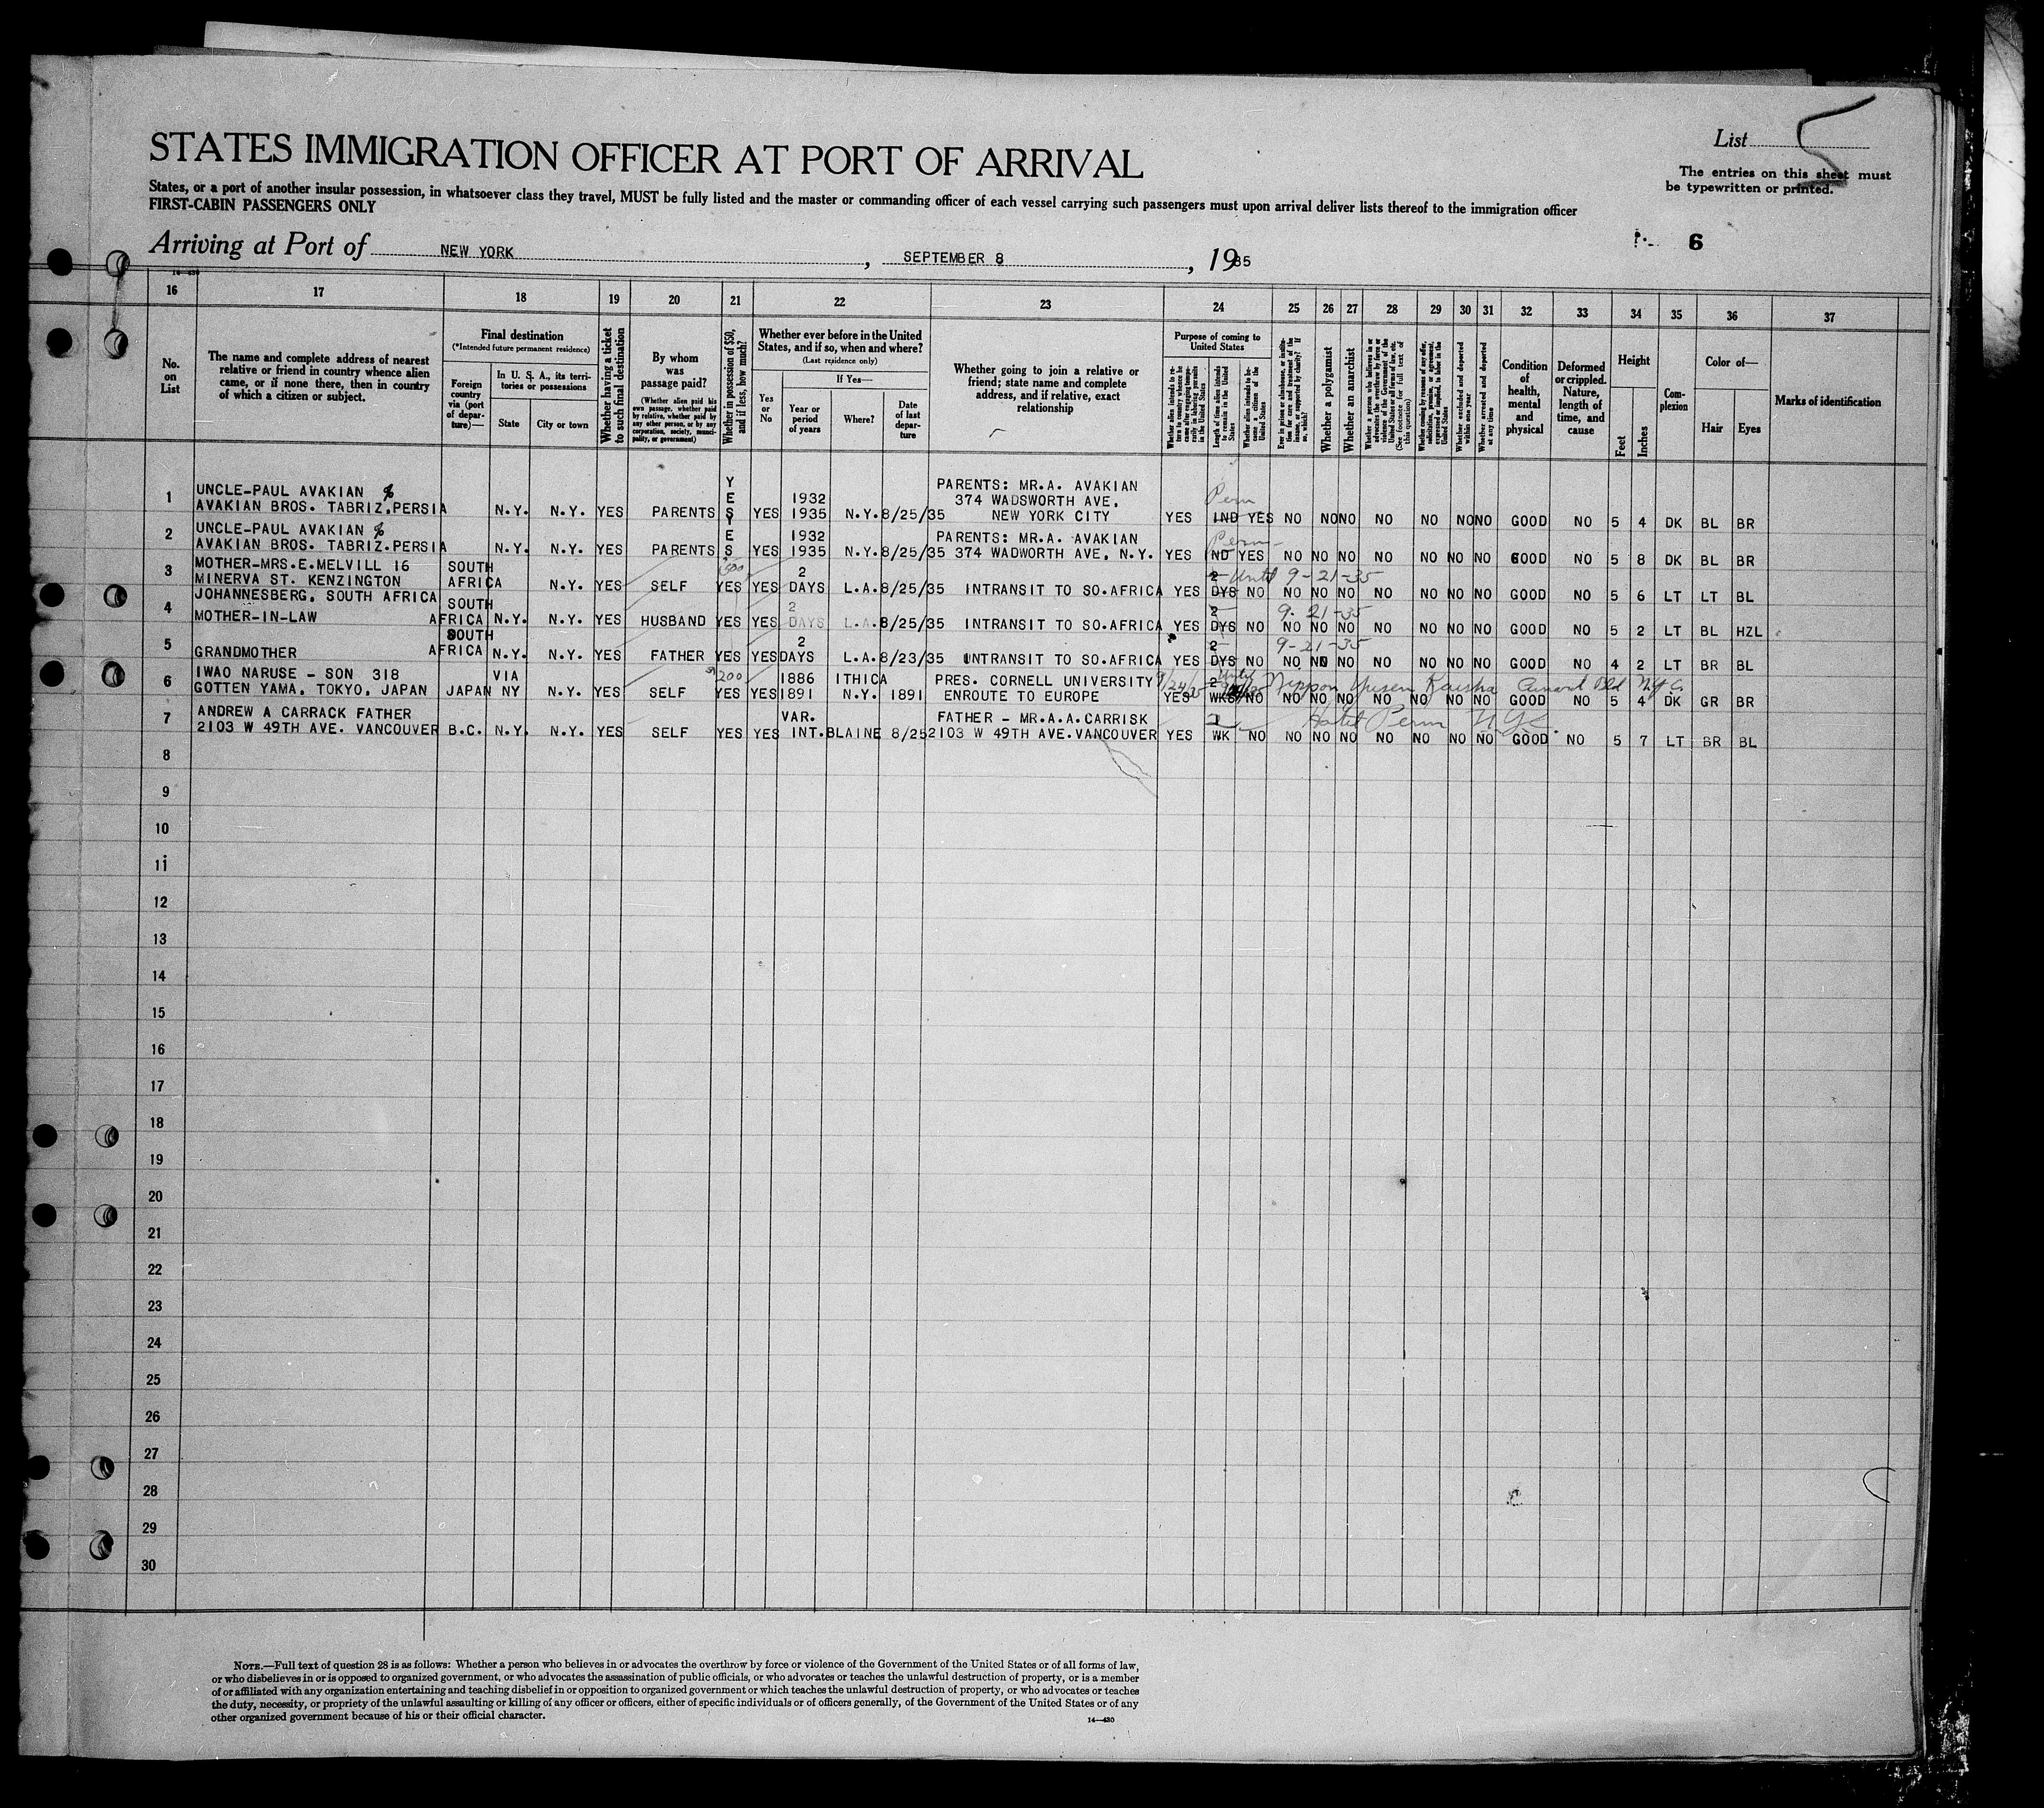 STATES IMMIGRATION OFFICER AT PORT OF ARRIVAL
List
The entries on this sheet must
be typewritten or printed.
States, or a port of another insular possession, in whatsoever class they travel, MUST be fully listed and the master or commanding officer of each vessel carrying such passengers must upon arrival deliver lists thereof to the immigration officer
FIRST-CABIN PASSENGERS ONLY
6
Arriving at Port of NEW YORK, SEPTEMBER 8, 1935
16 17 18 19 20 21 22 23 24 25 26 27 28 29 30 31 32 33 34 35 36 37
No. on List
The name and complete address of nearest relative or friend in country whence alien came, or if none there, then in country of which a citizen or subject.
Final destination
(*Intended future permanent residence)
Foreign country via (port of departure)—
In U. S. A., its territories or possessions
State
City or town
Whether having a ticket to such final destination
By whom was passage paid?
(Whether alien paid his own passage, whether paid by relative, whether paid by any other person, or by any corporation, society, municipality, or government)
Whether in possession of $50, and if less, how much?
Whether ever before in the United States, and if so, when and where?
(Last residence only)
Yes or No
If Yes—
Year or period of years
Where?
Date of last departure
Whether going to join a relative or friend; state name and complete address, and if relative, exact relationship
Purpose of coming to United States
Length of time alien intends to remain in the United States
Whether alien intends to become a citizen of the United States
Whether a polygamist
Whether an anarchist
Condition of health, mental and physical
Deformed or crippled. Nature, length of time, and cause
Height
Feet
Inches
Complexion
Color of—
Hair
Eyes
Marks of identification
1 UNCLE-PAUL AVAKIAN % AVAKIAN BROS. TABRIZ.PERSIA N.Y. N.Y. YES PARENTS YES YES 1932 1935 N.Y. 8/25/35 PARENTS: MR.A. AVAKIAN 374 WADSWORTH AVE. NEW YORK CITY YES Perm IND YES NO NO NO NO NO NO NO GOOD NO 5 4 DK BL BR
2 UNCLE-PAUL AVAKIAN % AVAKIAN BROS. TABRIZ.PERSIA N.Y. N.Y. YES PARENTS YES YES 1932 1935 N.Y. 8/25/35 PARENTS: MR.A. AVAKIAN 374 WADWORTH AVE, N.Y. YES Perm IND YES NO NO NO NO NO NO NO GOOD NO 5 8 DK BL BR
3 MOTHER-MRS.E.MELVILL 16 MINERVA ST. KENZINGTON JOHANNESBERG, SOUTH AFRICA SOUTH AFRICA N.Y. YES SELF YES YES 2 DAYS L.A. 8/25/35 INTRANSIT TO SO.AFRICA YES 2 DYS Until 9-21-35 NO NO NO NO NO NO NO NO GOOD NO 5 6 LT LT BL
4 MOTHER-IN-LAW SOUTH AFRICA N.Y. N.Y. YES HUSBAND YES YES 2 DAYS L.A. 8/25/35 INTRANSIT TO SO.AFRICA YES 2 DYS 9-21-35 NO NO NO NO NO NO NO NO GOOD NO 5 2 LT BL HZL
5 GRANDMOTHER SOUTH AFRICA N.Y. N.Y. YES FATHER YES YES 2 DAYS L.A. 8/23/35 INTRANSIT TO SO.AFRICA YES 2 DYS 9-21-35 NO NO NO NO NO NO NO NO GOOD NO 4 2 LT BR BL
6 IWAO NARUSE - SON 318 GOTTEN YAMA, TOKYO, JAPAN JAPAN VIA NY N.Y. YES SELF 200 YES YES 1886 1891 ITHICA N.Y. 1891 PRES. CORNELL UNIVERSITY ENROUTE TO EUROPE YES 2 WKS Until Nippon Yusen Kaisha Cunard Bld NYC NO NO NO NO NO NO NO NO GOOD NO 5 4 DK GR BR
7 ANDREW A CARRACK FATHER 2103 W 49TH AVE. VANCOUVER B.C. N.Y. N.Y. YES SELF YES YES VAR. INT. BLAINE 8/25 FATHER - MR.A.A.CARRISK 2103 W 49TH AVE.VANCOUVER YES WK Hotel Penn N.Y.C. NO NO NO NO NO NO NO NO GOOD NO 5 7 LT BR BL
8
9
10
11
12
13
14
15
16
17
18
19
20
21
22
23
24
25
26
27
28
29
30
NOTE.—Full text of question 28 is as follows: Whether a person who believes in or advocates the overthrow by force or violence of the Government of the United States or of all forms of law,
or who disbelieves in or is opposed to organized government, or who advocates the assassination of public officials, or who advocates or teaches the unlawful destruction of property, or is a member
of or affiliated with any organization entertaining and teaching disbelief in or opposition to organized government or which teaches the unlawful destruction of property, or who advocates or teaches
the duty, necessity, or propriety of the unlawful assaulting or killing of any officer or officers, either of specific individuals or of officers generally, of the Government of the United States or of any
other organized government because of his or their official character.
14—430